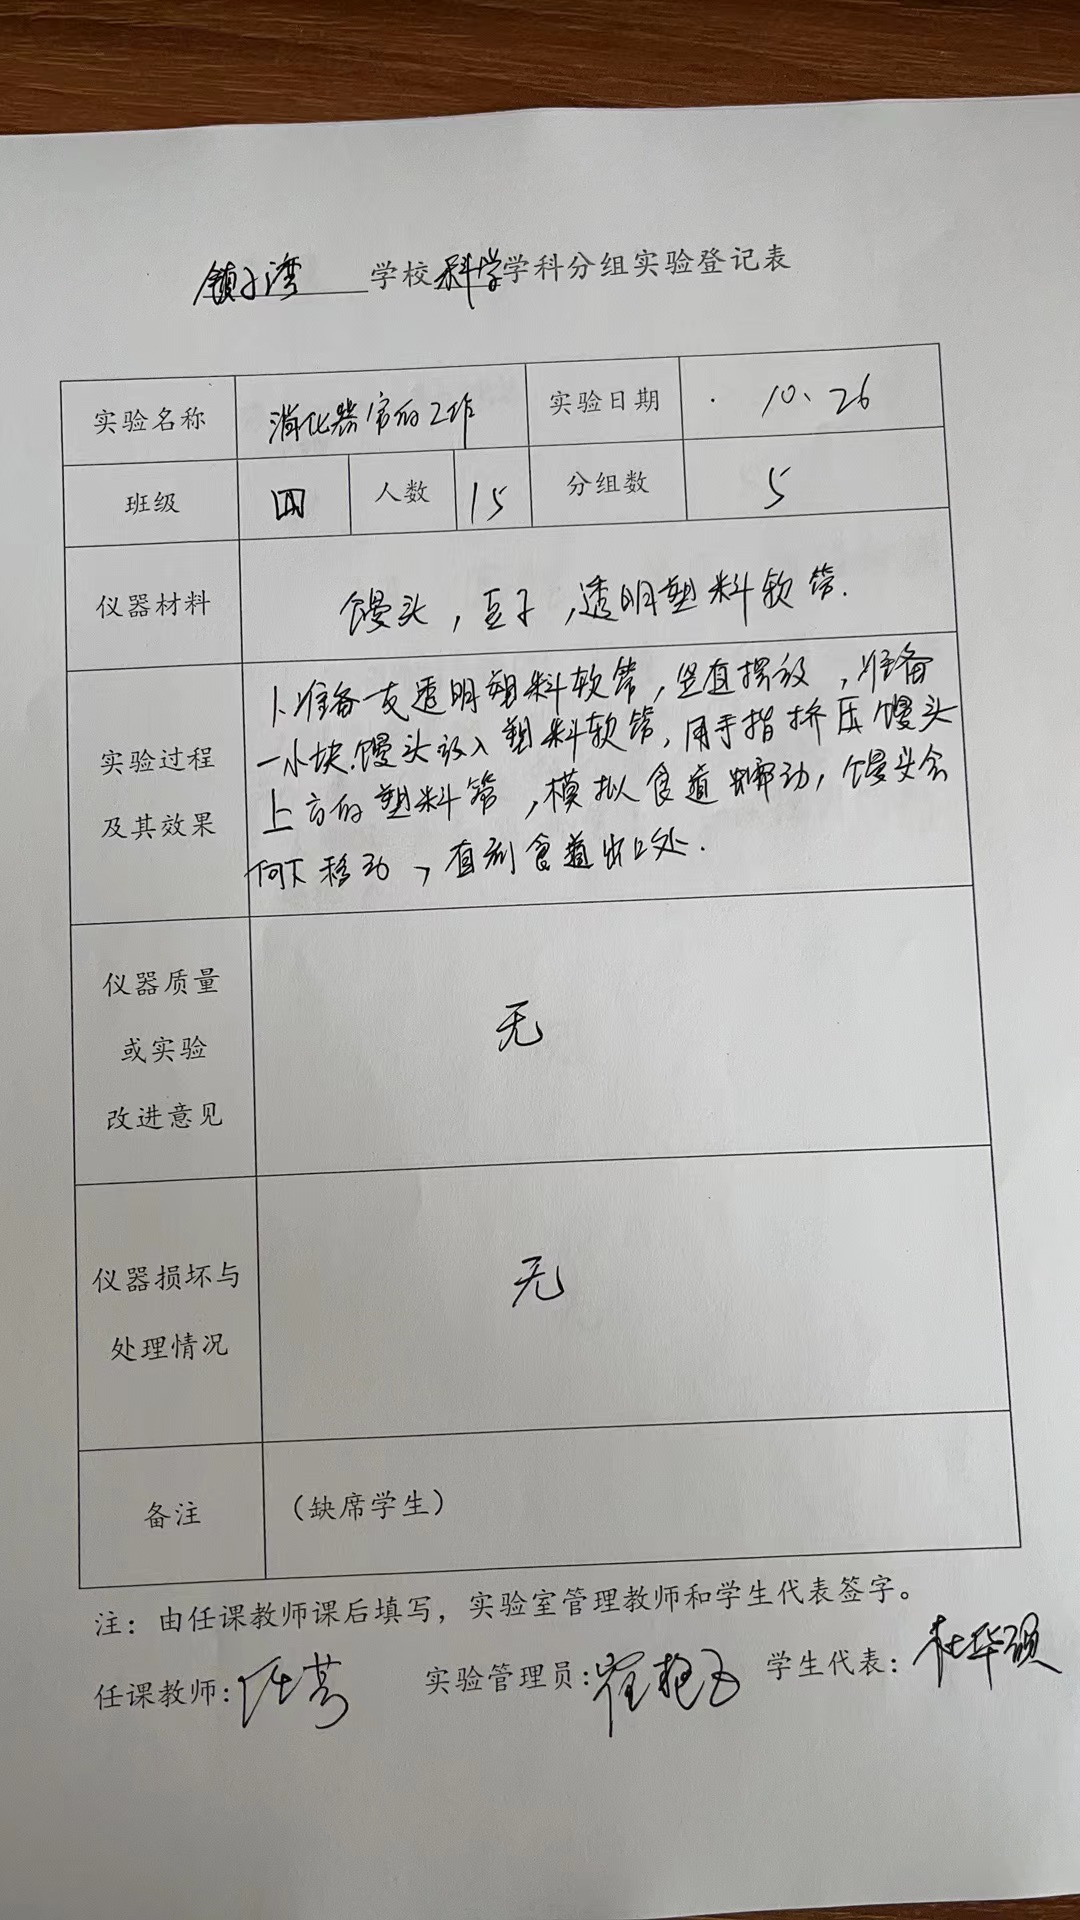 镇子湾 学校科学学科分组实验登记表
实验名称 消化器官的工作 实验日期 10.26
班级 四 人数 15 分组数 5
仪器材料 馒头，豆子，透明塑料软管.
实验过程
及其效果
1、准备一支透明塑料软管，竖直摆放，准备
一小块馒头放入塑料软管，用手指挤压馒头
上方的塑料管，模拟食道蠕动，馒头会
向下移动，直到食道出口处.
仪器质量
或实验
改进意见
无
仪器损坏与
处理情况
无
备注 （缺席学生）
注：由任课教师课后填写，实验室管理教师和学生代表签字。
任课教师：任芳 实验管理员：崔 学生代表：杜华硕